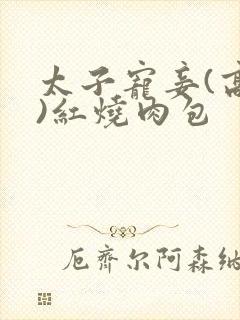 太子寵妾(高
)紅燒肉包
厄齐尔阿森纳